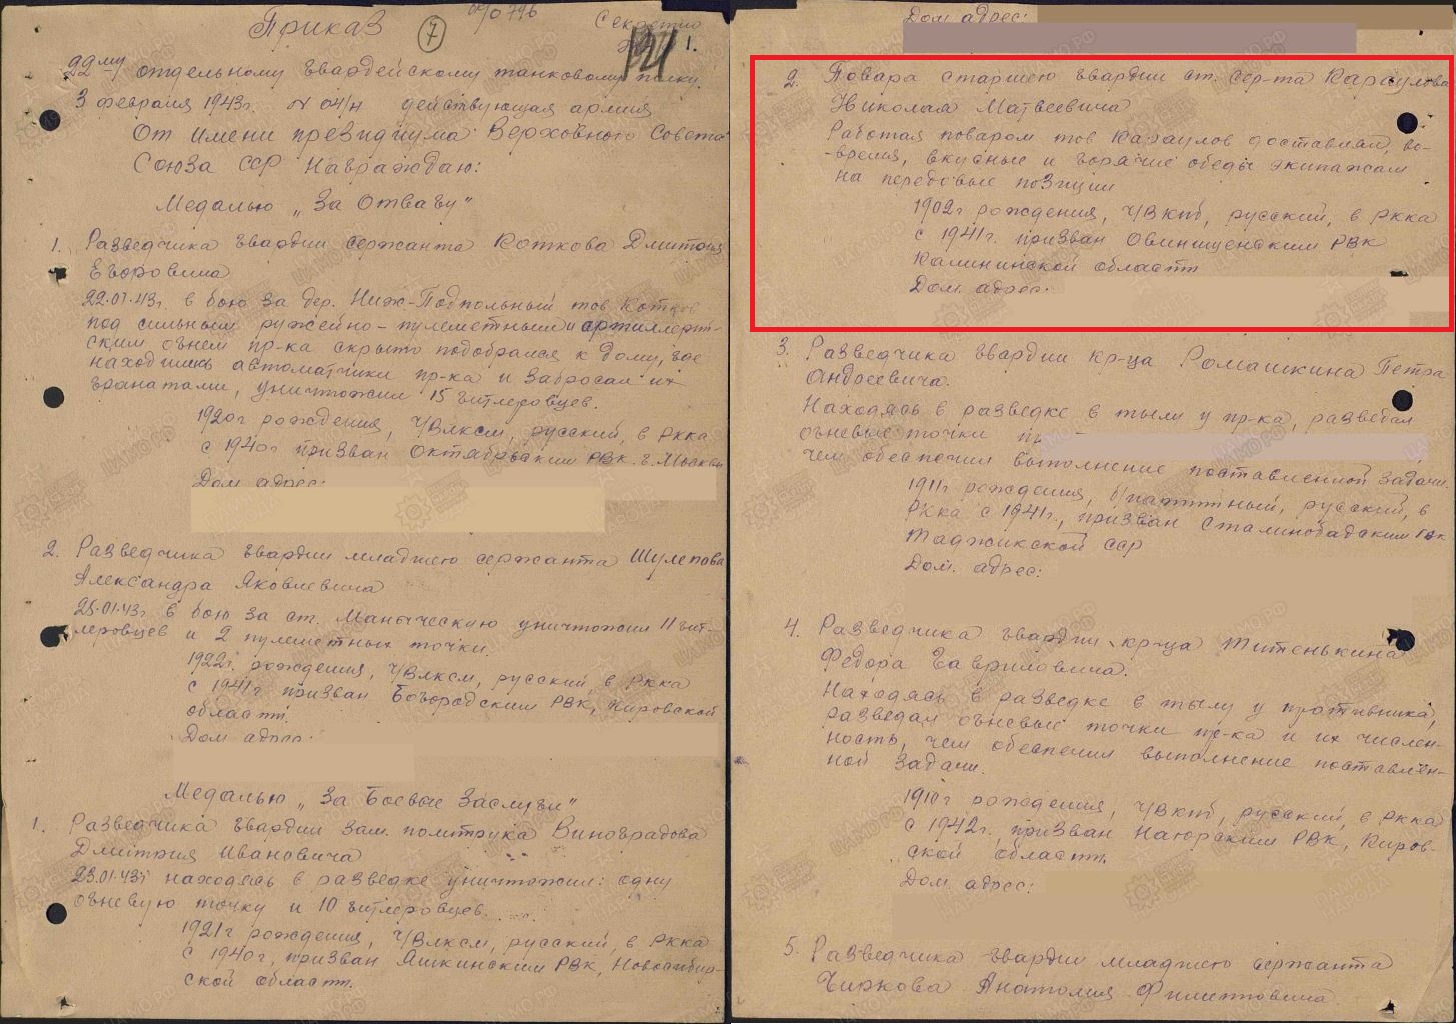 Приказ
7
040796
Секретно
121 1.
22му отдельному гвардейскому танковому полку.
3 февраля 1943г. № 04/н действующая армия
От имени президиума Верховного Совета
Союза ССР Награждаю:
Медалью „За Отвагу"
1. Разведчика гвардии сержанта Коткова Дмитрия
Егоровича
22.01.43г. в бою за дер. Ниж-Подпольный тов Котков
под сильным ружейно-пулеметным и артиллерий-
ским огнем пр-ка скрыто подобрался к дому, где
находились автоматчики пр-ка и забросал их
гранатами, уничтожил 15 гитлеровцев.
1920г рождения, ч/ВЛКСМ, русский, в РККА
с 1940г призван Октябрьским РВК г. Москвы
Дом адрес:
2. Разведчика гвардии младшего сержанта Шулепова
Александра Яковлевича
25.01.43г в бою за ст. Манычскую уничтожил 11 гит-
леровцев и 2 пулеметных точки.
1922г. рождения, ч/ВЛКСМ, русский в РККА
с 1941г призван Богородским РВК, Кировской
области.
Дом адрес:
Медалью „За Боевые Заслуги"
1. Разведчика гвардии зам. политрука Виноградова
Дмитрия Ивановича
23.01.43г находясь в разведке уничтожил: одну
огневую точку и 10 гитлеровцев.
1921г рождения, ч/ВЛКСМ, русский, в РККА
с 1940г, призван Яшкинским РВК, Новосибир-
ской области.
Дом адрес:
2. Повара старшего гвардии ст. сер-та Караулова
Николая Матвеевича
Работая поваром тов Караулов доставлял, во-
-время, вкусные и горячие обеды экипажам
на передовые позиции
1902г рождения, ч/ВКПб, русский, в РККА
с 1941г. призван Овинищенским РВК
Калининской области
Дом. адрес:
3. Разведчика гвардии кр-ца Ромашкина Петра
Андреевича.
Находясь в разведке в тылу у пр-ка, разведал
огневые точки пр
чем обеспечил выполнение поставленной задачи.
1911г рождения, б/партийный, русский, в
РККА с 1941г., призван Сталинобадским
Таджикской ССР
Дом. адрес:
4. Разведчика гвардии кр-ца Митенькина
Федора Гавриловича.
Находясь в разведке в тылу у противника,
разведал огневые точки пр-ка и их числен-
ность, чем обеспечил выполнение поставлен-
ной задачи.
1910г рождения, ч/ВКПб, русский, в РККА
с 1942г., призван Нагорским РВК, Киров-
ской области.
Дом адрес:
5. Разведчика гвардии младшего сержанта
Чиркова Анатолия Филипповича